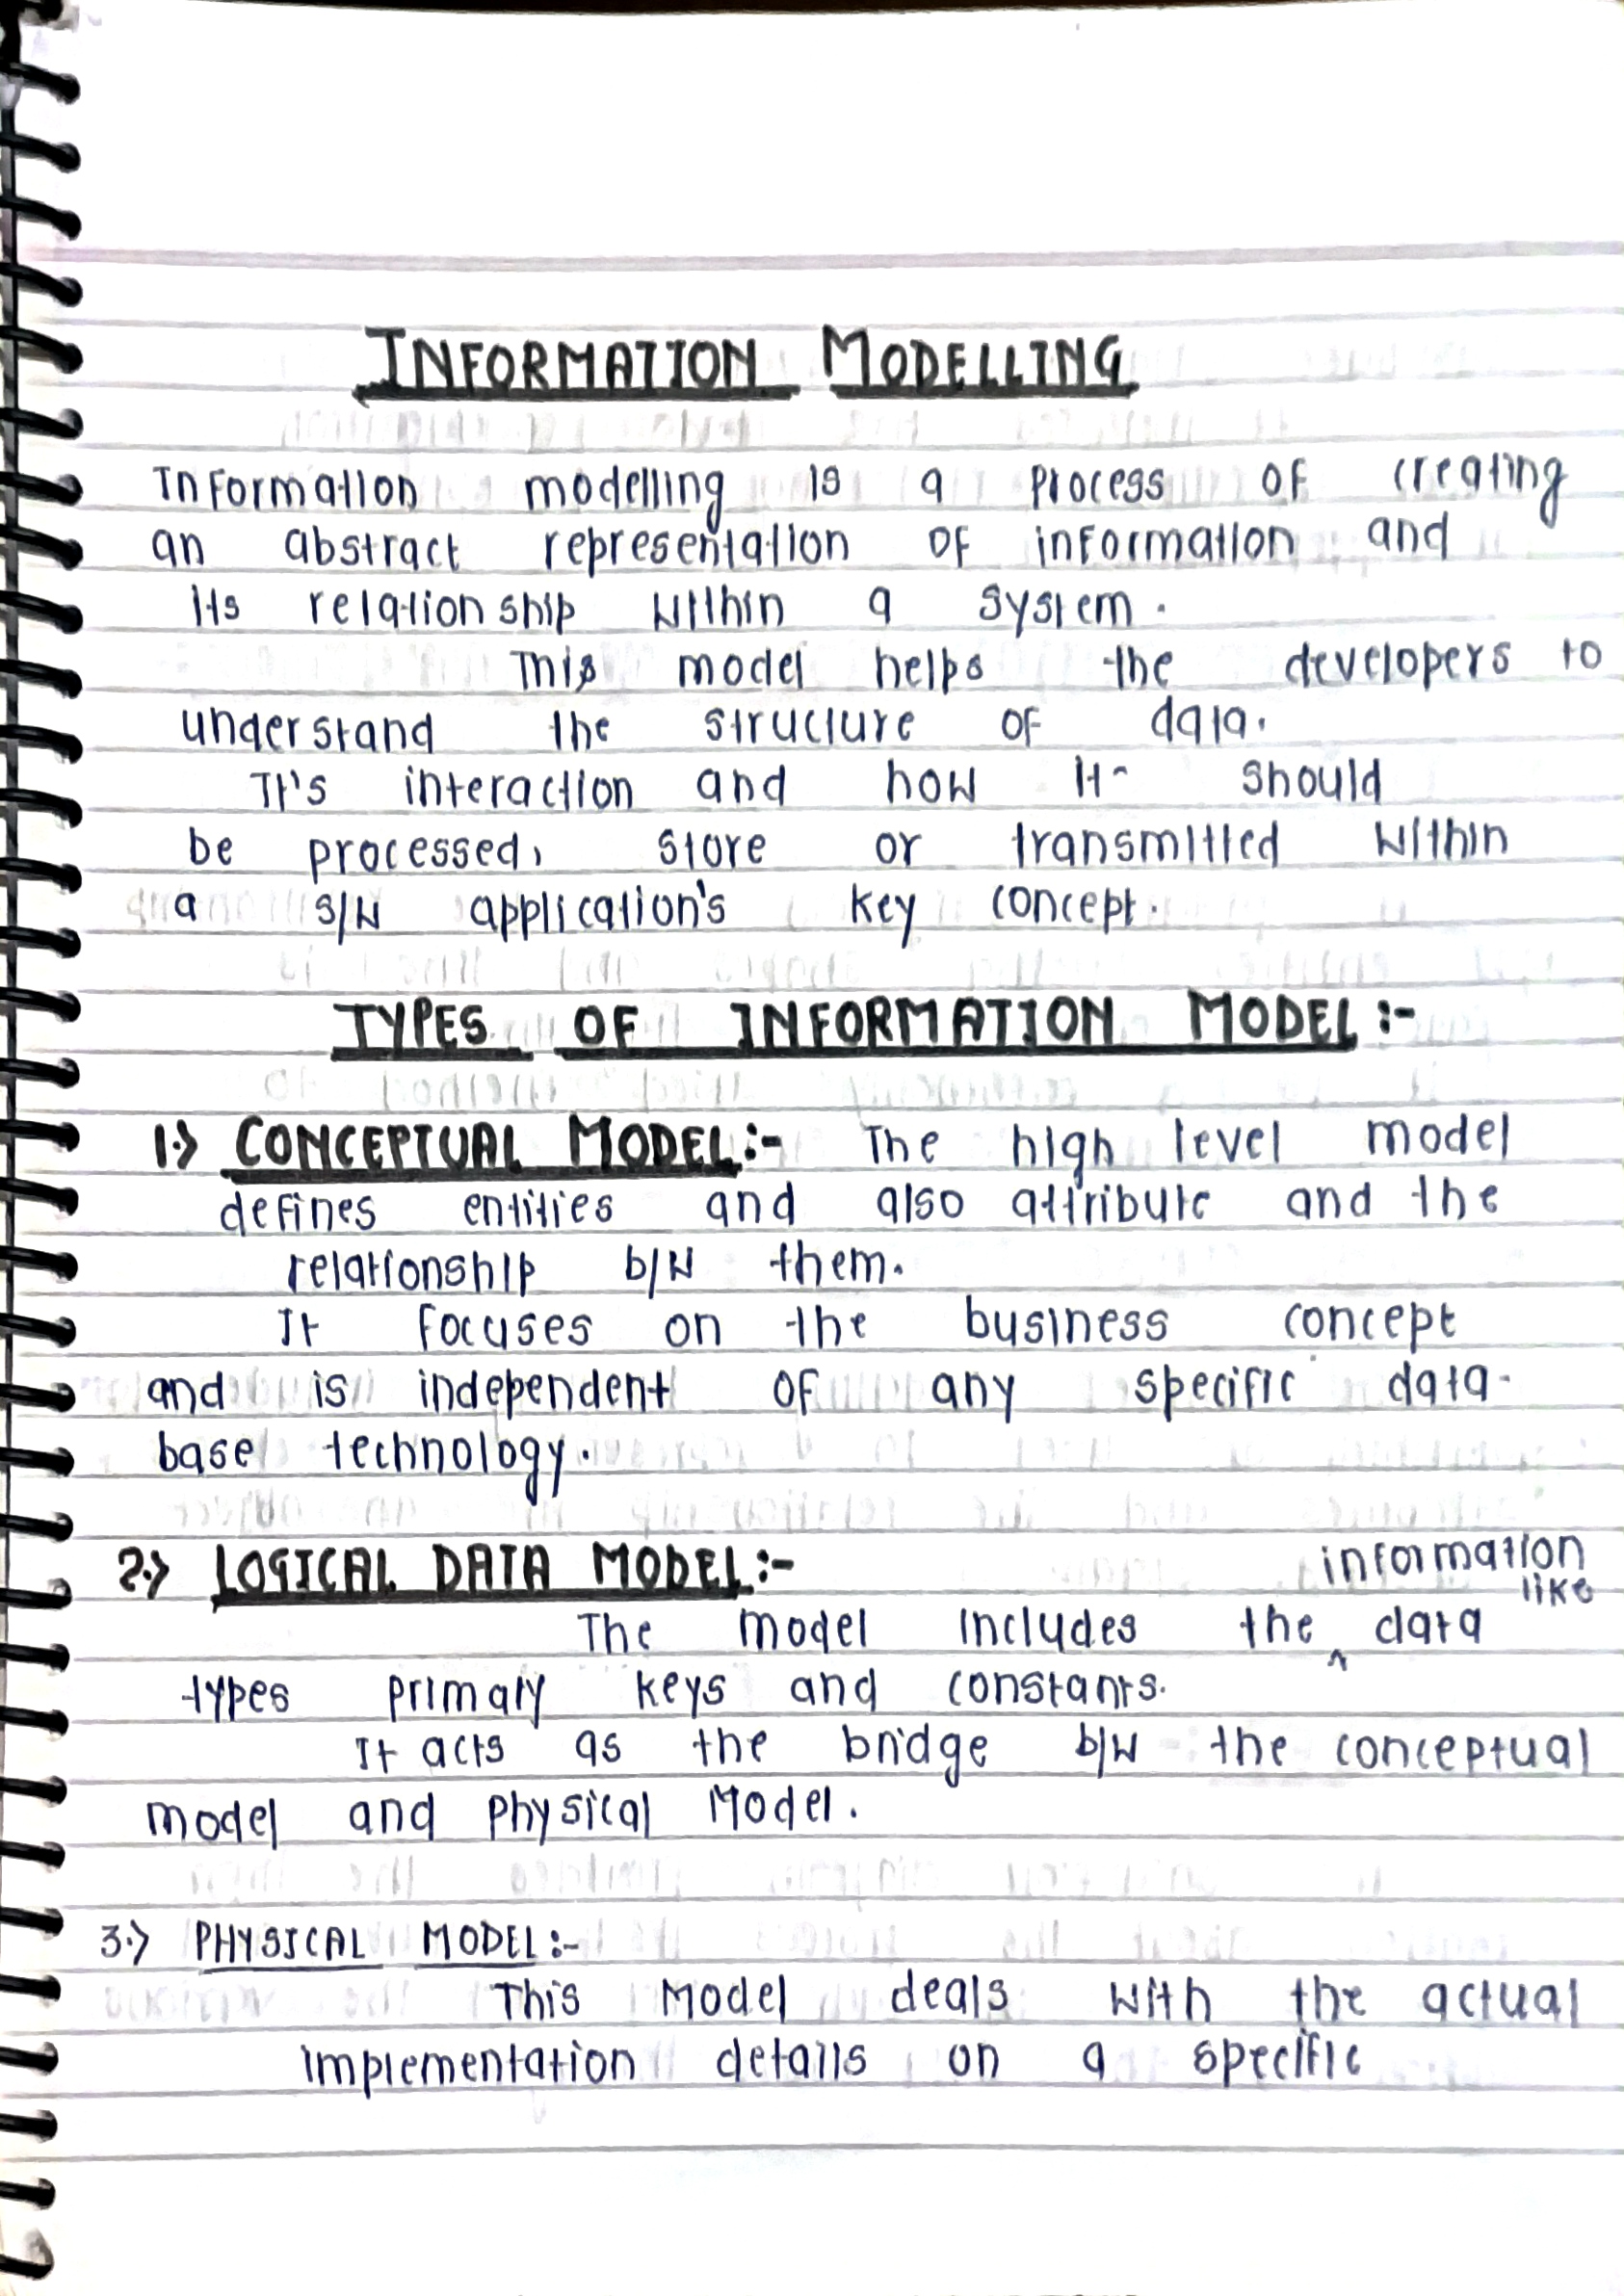 INFORMATION MODELLING
Information modelling is a process of creating
an abstract representation of information and
its relationship within a system.
This model helps the developers to
understand the structure of data.
It's interaction and how it should
be processed, store or transmitted within
a S/W application's key concept.
TYPES OF INFORMATION MODEL:-
1.> CONCEPTUAL MODEL:- The high level model
defines entities and also attribute and the
relationship b/w them.
It focuses on the business concept
and is independent of any specific data-
base technology.
2.> LOGICAL DATA MODEL:-
The model includes the ^ information like data
types primary keys and constants.
It acts as the bridge b/w the conceptual
model and physical Model.
3.> PHYSICAL MODEL:-
This Model deals with the actual
implementation details on a specific